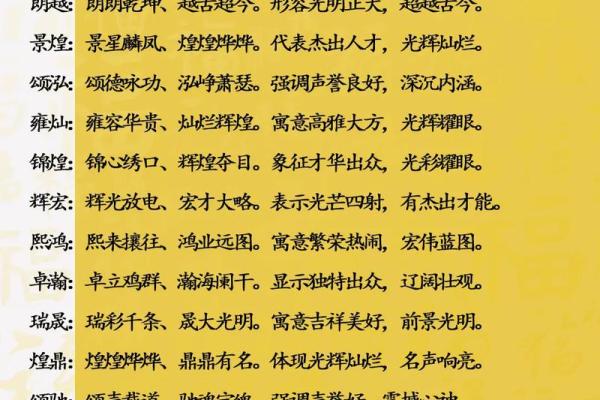 朗越：朗朗乾坤、越古超今。形容光明正大，超越古今。
景煌：景星麟凤、煌煌烨烨。代表杰出人才，光辉灿烂。
颂泓：颂德咏功、泓峥萧瑟。强调声誉良好，深沉内涵。
雍灿：雍容华贵、灿烂辉煌。寓意高雅大方，光辉耀眼。
锦煌：锦心绣口、辉煌夺目。象征才华出众，光彩耀眼。
辉宏：辉光放电、宏才大略。表示光芒四射，有杰出才能。
熙鸿：熙来攘往、鸿业远图。寓意繁荣热闹，宏伟蓝图。
卓瀚：卓立鸡群、瀚海阑干。显示独特出众，辽阔壮观。
瑞晟：瑞彩千条、晟大光明。寓意吉祥美好，前景光明。
煌鼎：煌煌烨烨、鼎鼎有名。体现光辉灿烂，名声响亮。
颂驰：颂声载道、驰魂宕魄。强调声誉好，震撼心神。